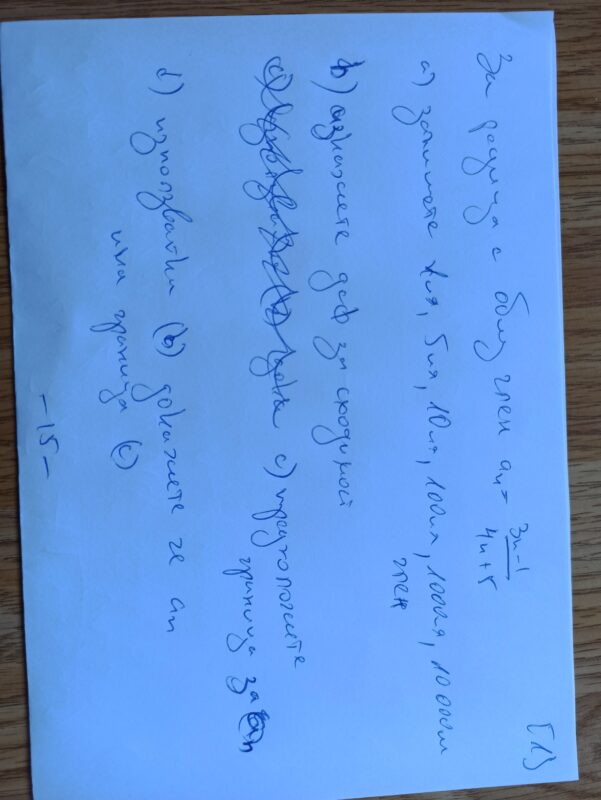 [1]
За редица с общ член an = 3n-1 / 4n+5
a) запишете 1ия, 5ия, 10ия, 100ия, 1000ия, 10 000ия
член
b) изкажете деф за сходимост
c) предположете
граница за an
d) използвайки (b) докажете че an
има граница (c)
-15-